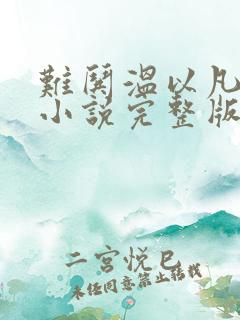 難鬨溫以凡
小說完整版
二宮悅巳
未任同意禁止转载